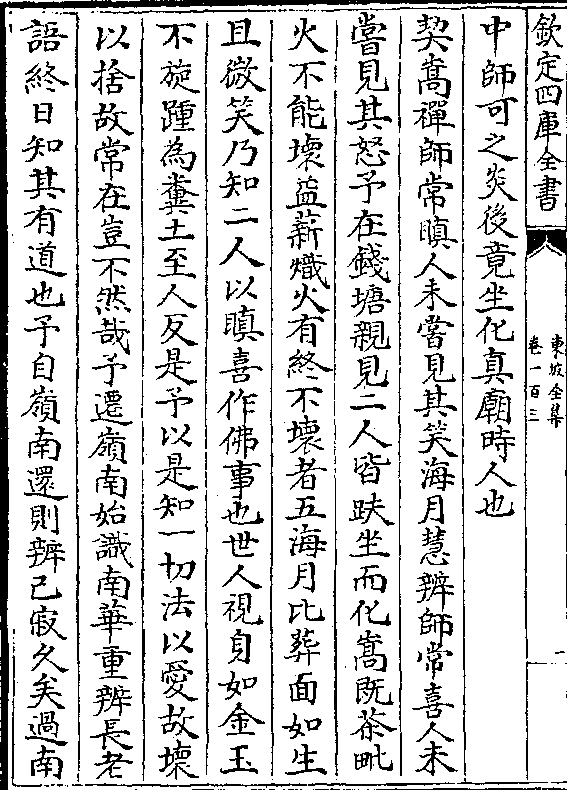 欽定四庫全書
東坡全集
卷一百三
中師可之炎後竟坐化真廟時人也
契嵩禪師常瞋人未嘗見其笑海月慧辨師常喜人未
嘗見其怒予在錢塘親見二人皆趺坐而化嵩既荼毗
火不能壞益薪熾火有終不壞者五海月比葬面如生
且微笑乃知二人以瞋喜作佛事也世人視身如金玉
不旋踵為糞土至人反是予以是知一切法以愛故壞
以捨故常在豈不然哉予遷嶺南始識南華重辨長老
語終日知其有道也予自嶺南還則辨已寂久矣過南